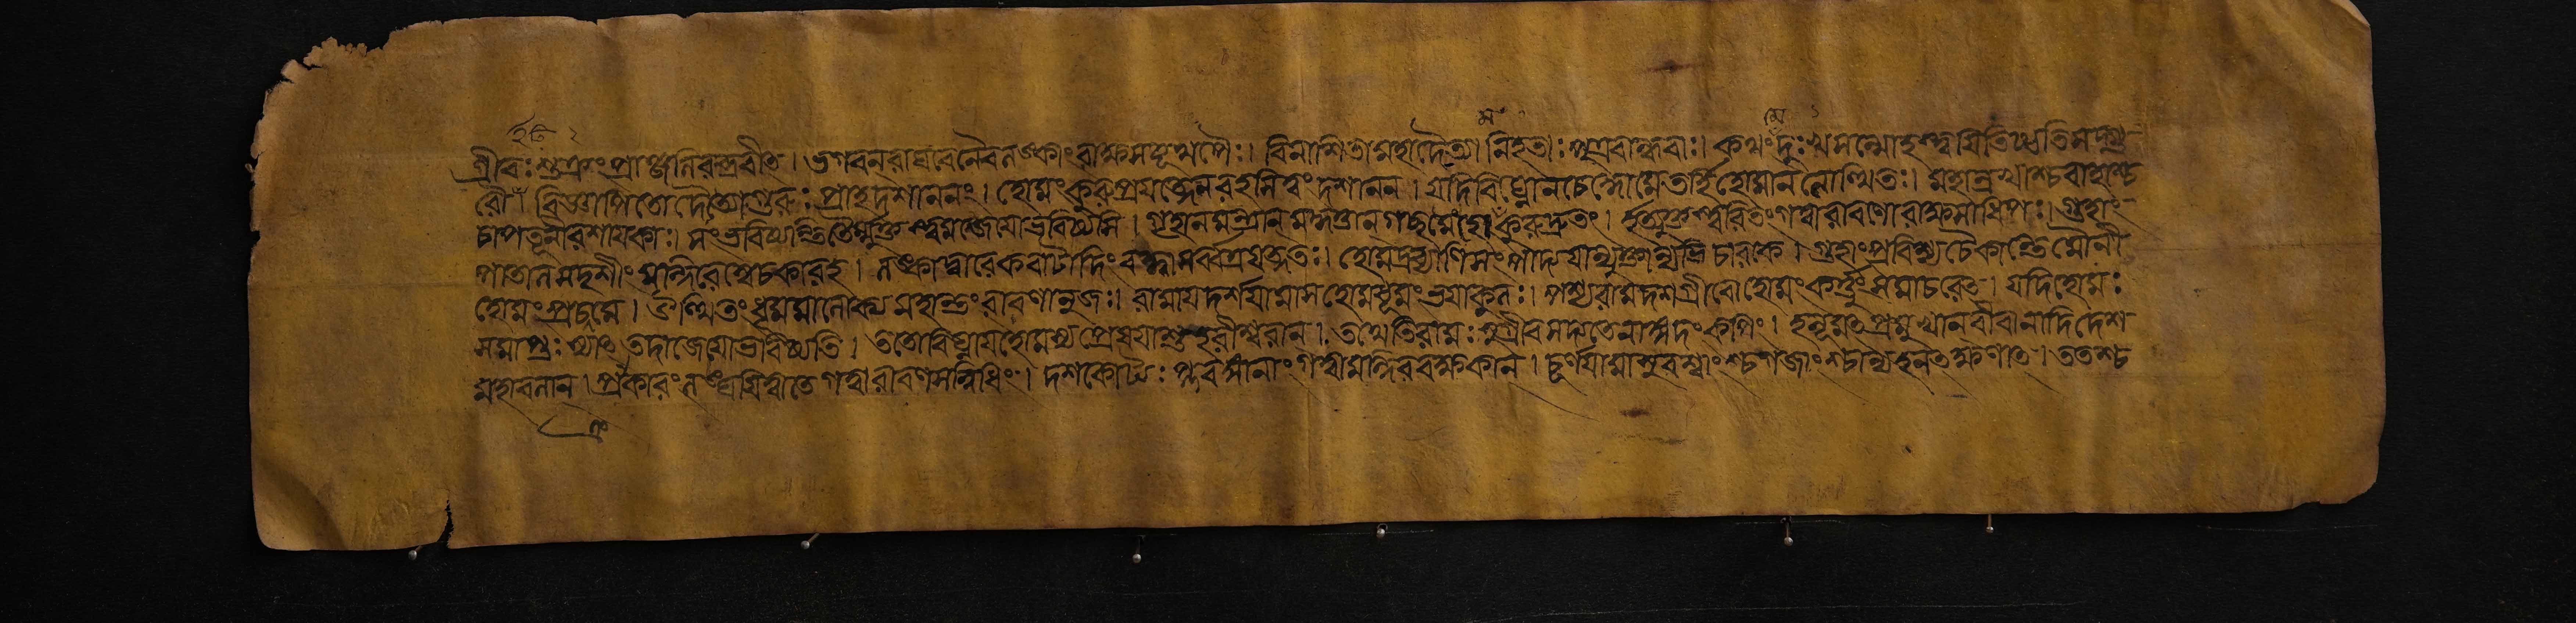 গ্রীবঃ শুক্রং প্রাঞ্জলিরব্রবীৎ । ভগবনরাঘবেনৈবলঙ্কাং রাক্ষসযূথপৈঃ । বিনাশিতামহাদৈত্যা নিহতাঃ পুত্রবান্ধবাঃ । কথং দুঃখসন্দোহস্ত্বযিতিষ্ঠতিসদ্গু
রৌ বিজ্ঞাপিতোদৈত্যোগুরুঃ প্রাহদশাননং । হোমং কুরুপ্রযত্নেনরহসিত্বং দশানন । যদিবিঘ্নোনচেদ্ধোমেতর্হিহোমানলোত্থিতঃ । মহান্রথাশ্চবাহাশ্চ
চাপতূনীরশাযকাঃ । সংভবিষ্যন্তিতৈর্যুক্তস্ত্বমজেযোভবিষ্যসি । গৃহানমন্ত্রানমদ্দত্তানগচ্ছহোমংকুরুদ্রুতং । ইত্যুক্তস্ত্বরিতংগত্বারাবণোরাক্ষসাধিপঃ । গুহাং
পাতালসদৃশীং মন্দিরেস্বেচকারহ । লঙ্কাদ্বারেকবাটাদিং বদ্ধ্বাসর্ব্বত্রযত্নতঃ । হোমদ্রব্যাণিসংপাদ্যযান্যুক্তান্যভিচারকে । গুহাংপ্রবিশ্যচৈকান্তেমৌনী
হোমংপ্রচক্রমে । উত্থিতং ধূমমালোক্য মহান্তং রাবণানুজঃ । রামাযদর্শযামাসহোমধূমং ভযাকুলঃ । পশ্যরামদশগ্রীবোহোমং কর্ত্তুং সমাচরেৎ । যদিহোমঃ
সমাপ্তঃ স্যাৎ তদাজেযোভবিষ্যতি । ততোবিঘ্নাযহোমস্যপ্রেষযাশুহরীশ্বরান । তথেতিরামঃ সুগ্রীবসম্মতেনাঙ্গদং কপিং । হনূমৎপ্রমুখানবীরানাদিদেশ
মহাবলান । প্রকারং লঙ্ঘযিত্বাতেগত্বারাবণসন্নিধিং । দশকোট্যঃ প্লবঙ্গানাং গত্বামন্দিররক্ষকান । চূর্ণযামাসুরশ্বাংশ্চগজাংশ্চান্যহনতক্ষণাৎ । ততশ্চ